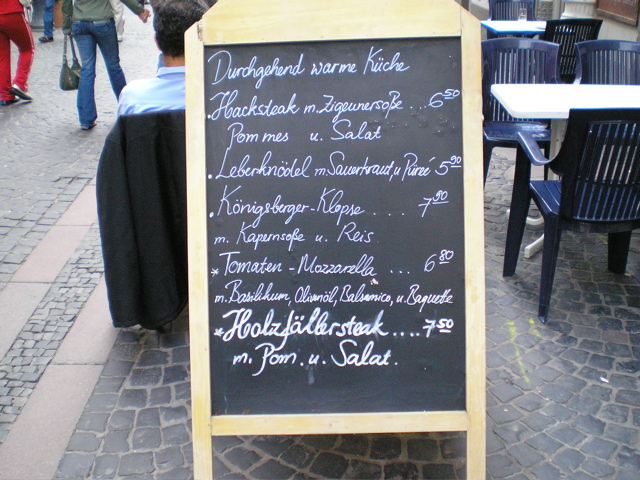 Durchgehend warme Küche
. Hacksteak m. Zigeunersoße ... 6 50
Pommes u. Salat
. Leberknödel m. Sauerkraut, u. Püreé 5 90
. Königsberger-Klopse .... 7 90
m. Kapernsoße u. Reis
* Tomaten-Mozzarella ... 6 80
m. Basilikum, Olivenöl, Balsamico, u. Baguette
* Holzfällersteak .... 7 50
m. Pom. u. Salat.